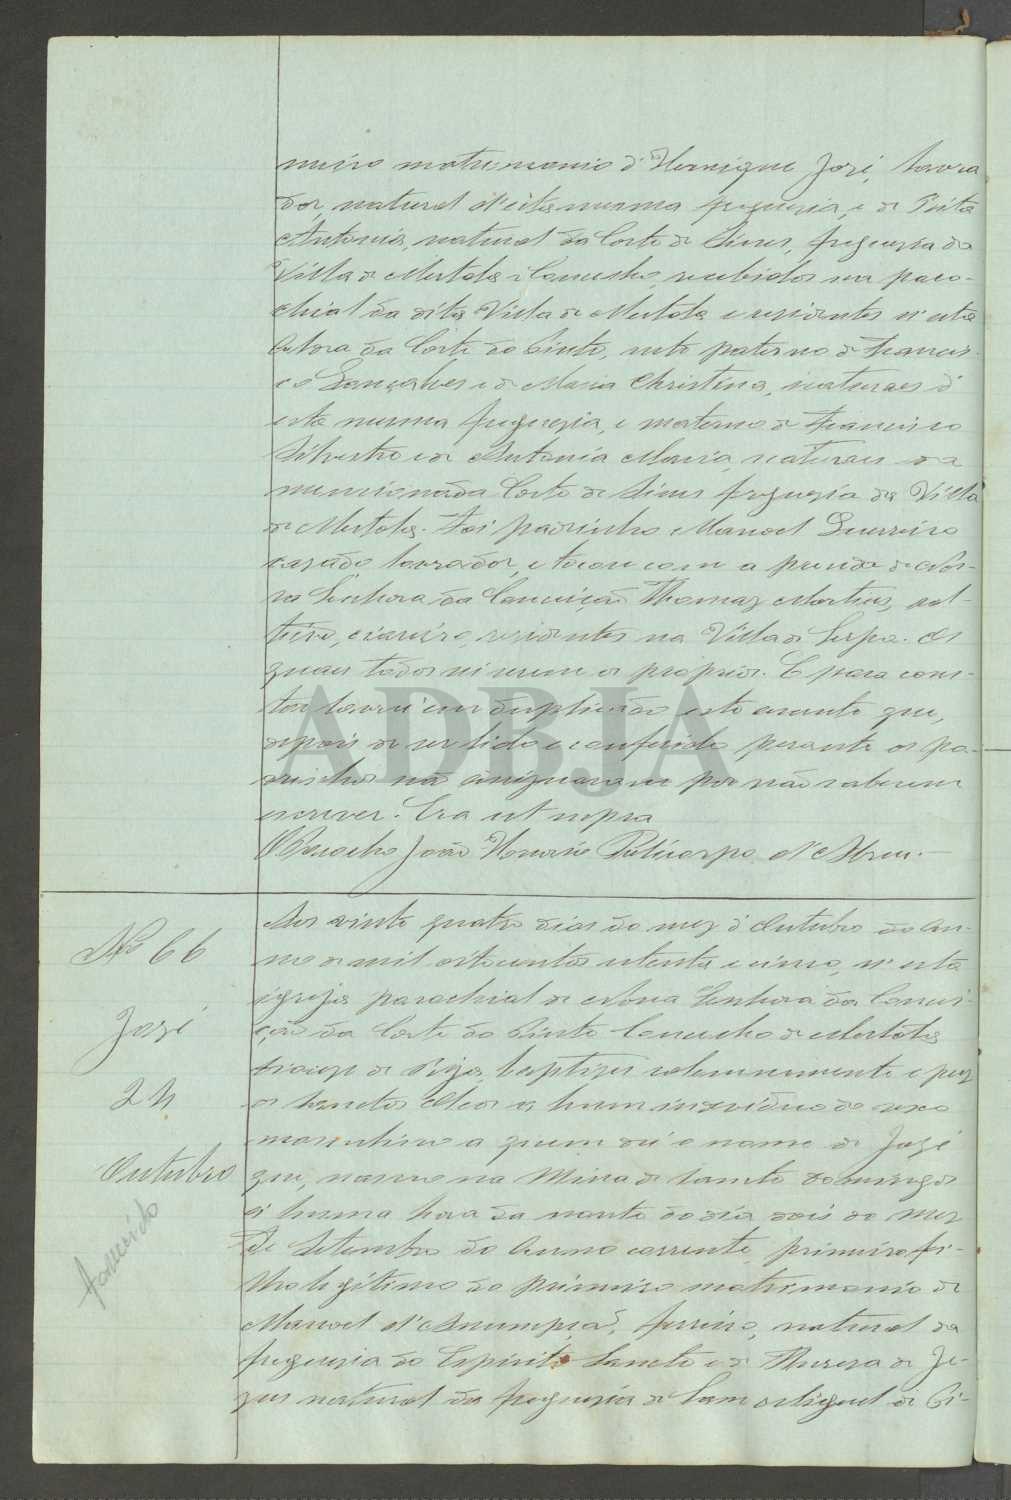 meiro matrimonio d'Henrique José, lavra
dor, natural d'esta mesma freguezia, e de Rita
Antonia, natural da Corte de Sines, freguezia da
Villa de Mertola e Concelho, recebidos na paro-
chial da dita Villa de Mertola e residentes n'esta
Aldea da Corte do Pinto, neto paterno de Francis-
co Gonçalves e de Maria Christina, naturaes d'
esta mesma freguezia, e materno de Francisco
Silvestre e de Antonia Maria, naturaes da
mencionada Corte de Sines freguezia da Villa
de Mertola. Foi padrinho Manoel Guerreiro
casado lavrador, e tocou com a prenda de Nos-
sa Senhora da Conceição Thomaz Martins, sol-
teiro, residentes na Villa de Serpa. Os
quaes todos sei serem os proprios. E para cons-
tar lavrei em duplicado este assento que,
depois de ser lido e conferido perante os pa-
drinhos não assignaram por não saberem
escrever. Era ut supra
O Parocho João Honorio Policarpo d'Abreu.
Nº 66
José
24
Outubro
fallecido
Aos vinte quatro dias do mez d'Outubro do An-
no de mil oitocentos setenta e cinco, n'esta
igreja parochial de Nossa Senhora da Concei-
ção da Corte do Pinto Concelho de Mertola
Diocese de Beja, baptizei solemnemente e puz
os Sanctos Oleos a hum individuo do sexo
masculino a quem dei o nome de José
que, nasceu na Mina de Sancto Domingos
á huma hora da noute do dia dois do mez
de Setembro do Anno corrente, primeiro fi-
lho legitimo do primeiro matrimonio de
Manoel d'Assumpçaõ, ferreiro, natural da
freguezia do Espirito Sancto e de Thereza de Je-
zus natural da freguezia de Sam Miguel de Pi-
ADBJA